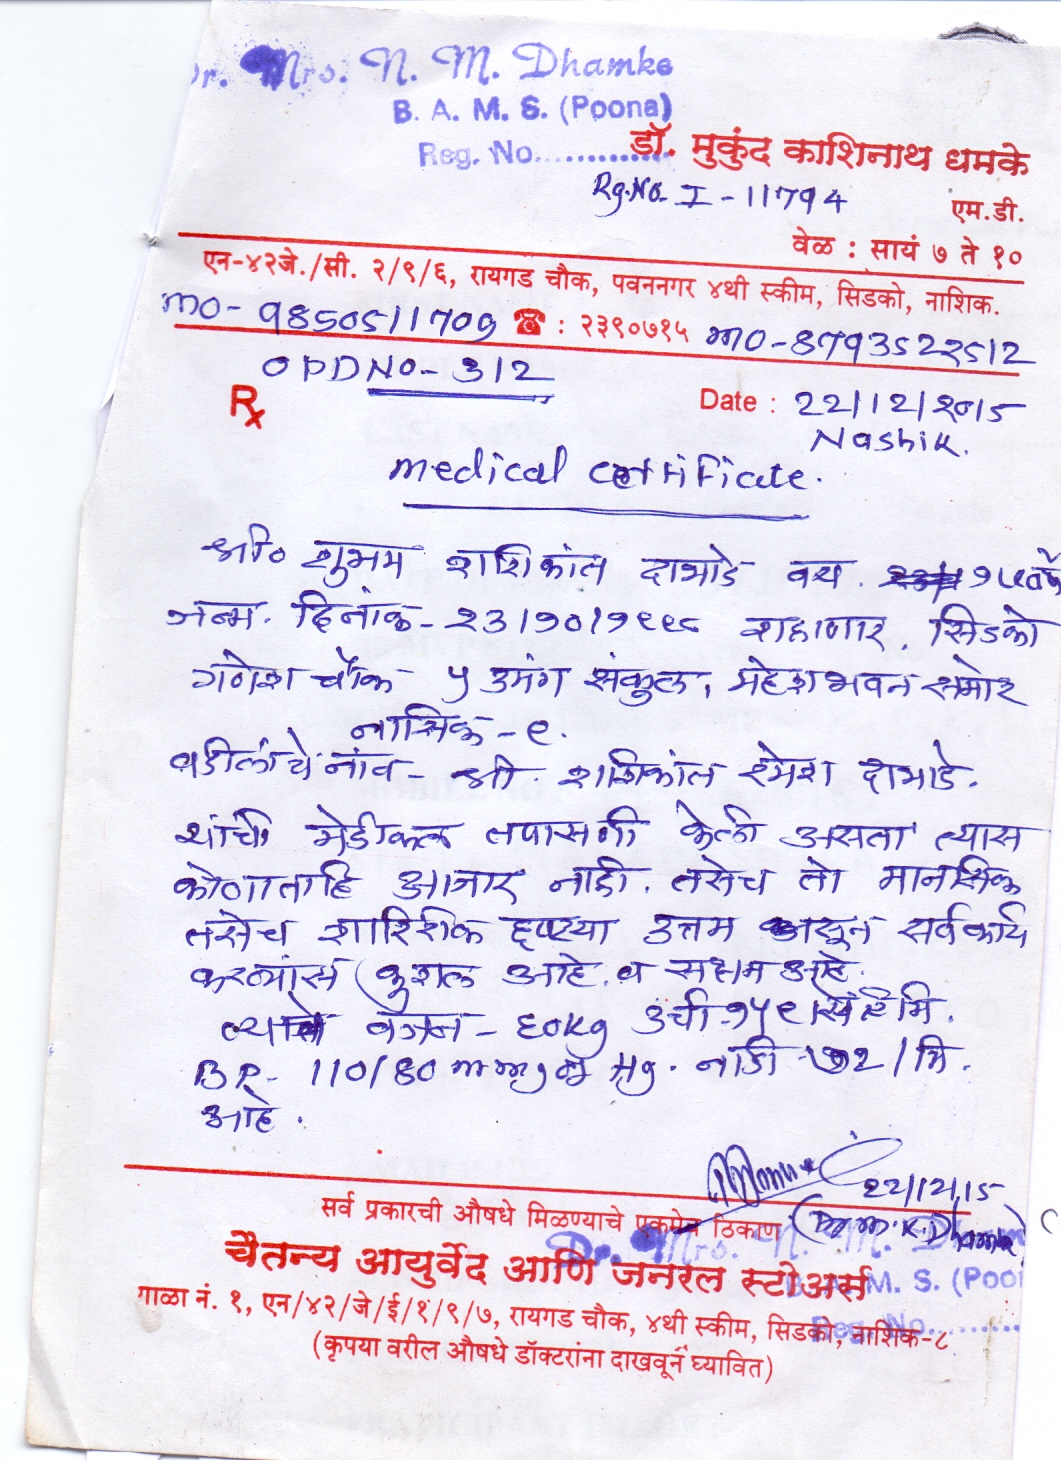 Dr. Mrs. N. M. Dhamke
B. A. M. S. (Poona)
Reg. No..............
डॉ. मुकुंद काशिनाथ धमके
Rg.No. I - 11794
एम.डी.
वेळ : सायं ७ ते १०
एन-४२जे./सी. २/९/६, रायगड चौक, पवननगर ४थी स्कीम, सिडको, नाशिक.
mo- 9850511709 ☎ : २३९०७१५ mo-8793522512
OPDNO- 312
Rx
Date : 22/12/2015
Nashik.
medical certificate.
श्री० शुभम शशिकांत दाभाडे वय. १८वर्षे
जन्म. दिनांक- २३/१०/१९९८ राहाणार, सिडको
गणेश चौक ५ उमंग संकुल, महेशभवन समोर
नासिक-९.
वडीलांचे नांव- श्री. शशिकांत रमेश दाभाडे.
यांची मेडीकल तपासणी केली असता त्यास
कोणताहि आजार नाही. तसेच तो मानसिक
तसेच शारिरीक दृष्ट्या उत्तम असून सर्व कार्य
करण्यांस कुशल आहे. व सक्षम आहे.
त्याचे वजन- ६०kg उंची-१५९ सें.मि.
BP- 110/80 mm Hg. नाडी-७२/मि.
आहे.
22/12/15
(Dr. M. K. Dhamke)
सर्व प्रकारची औषधे मिळण्याचे एकमेव ठिकाण
Dr. Mrs. N. M. Dham
चैतन्य आयुर्वेद आणि जनरल स्टोअर्स
B. A. M. S. (Poo
गाळा नं. १, एन/४२/जे/ई/१/९/७, रायगड चौक, ४थी स्कीम, सिडको, नाशिक-८
Reg. No...........
(कृपया वरील औषधे डॉक्टरांना दाखवूनं घ्यावित)